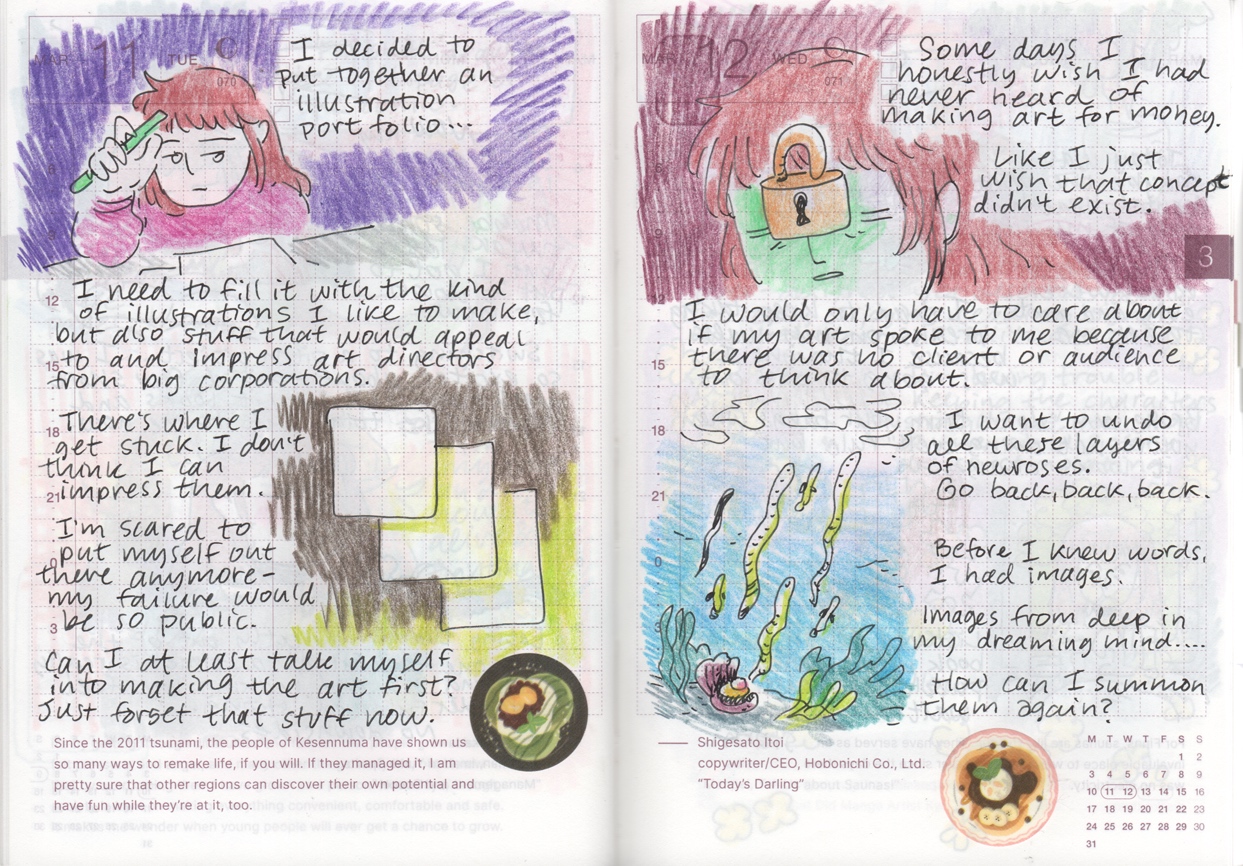 MAR 11 TUE
070
I decided to
put together an
illustration
portfolio...
I need to fill it with the kind
of illustrations I like to make,
but also stuff that would appeal
to and impress art directors
from big corporations.
There's where I
get stuck. I don't
think I can
impress them.
I'm scared to
put myself out
there anymore-
my failure would
be so public.
Can I at least talk myself
into making the art first?
Just forget that stuff now.
9
12
15
18
21
0
3
Since the 2011 tsunami, the people of Kesennuma have shown us
so many ways to remake life, if you will. If they managed it, I am
pretty sure that other regions can discover their own potential and
have fun while they're at it, too.
MAR 12 WED
071
Some days I
honestly wish I had
never heard of
making art for money.
Like I just
wish that concept
didn't exist.
3
I would only have to care about
if my art spoke to me because
there was no client or audience
to think about.
I want to undo
all these layers
of neuroses.
Go back, back, back.
Before I knew words,
I had images.
Images from deep in
my dreaming mind....
How can I summon
them again?
12
15
18
21
0
3
Shigesato Itoi
copywriter/CEO, Hobonichi Co., Ltd.
"Today's Darling"
M T W T F S S
1 2
3 4 5 6 7 8 9
10 11 12 13 14 15 16
17 18 19 20 21 22 23
24 25 26 27 28 29 30
31